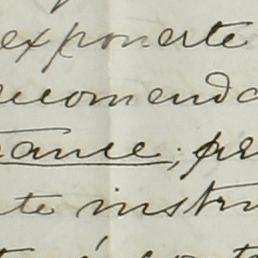 exponerte
recomenda
rance; pr
te instru